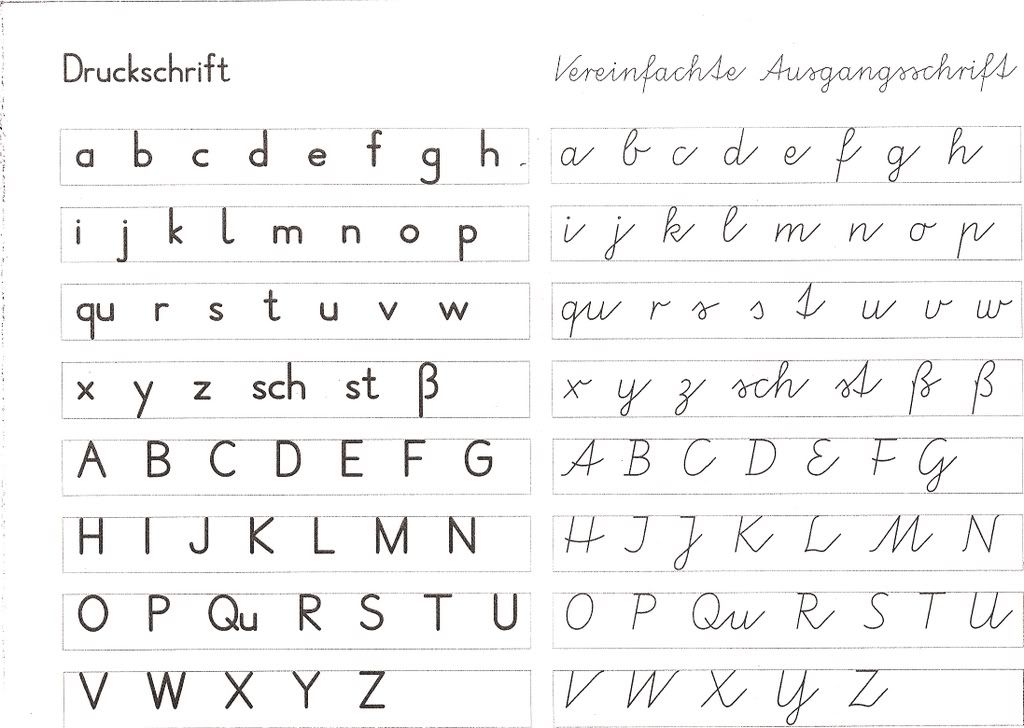 Druckschrift
a b c d e f g h
i j k l m n o p
qu r s t u v w
x y z sch st ß
A B C D E F G
H I J K L M N
O P Qu R S T U
V W X Y Z
Vereinfachte Ausgangsschrift
a b c d e f g h
i j k l m n o p
qu r s s t u v w
x y z sch st ß ß
A B C D E F G
H I J K L M N
O P Qu R S T U
V W X Y Z